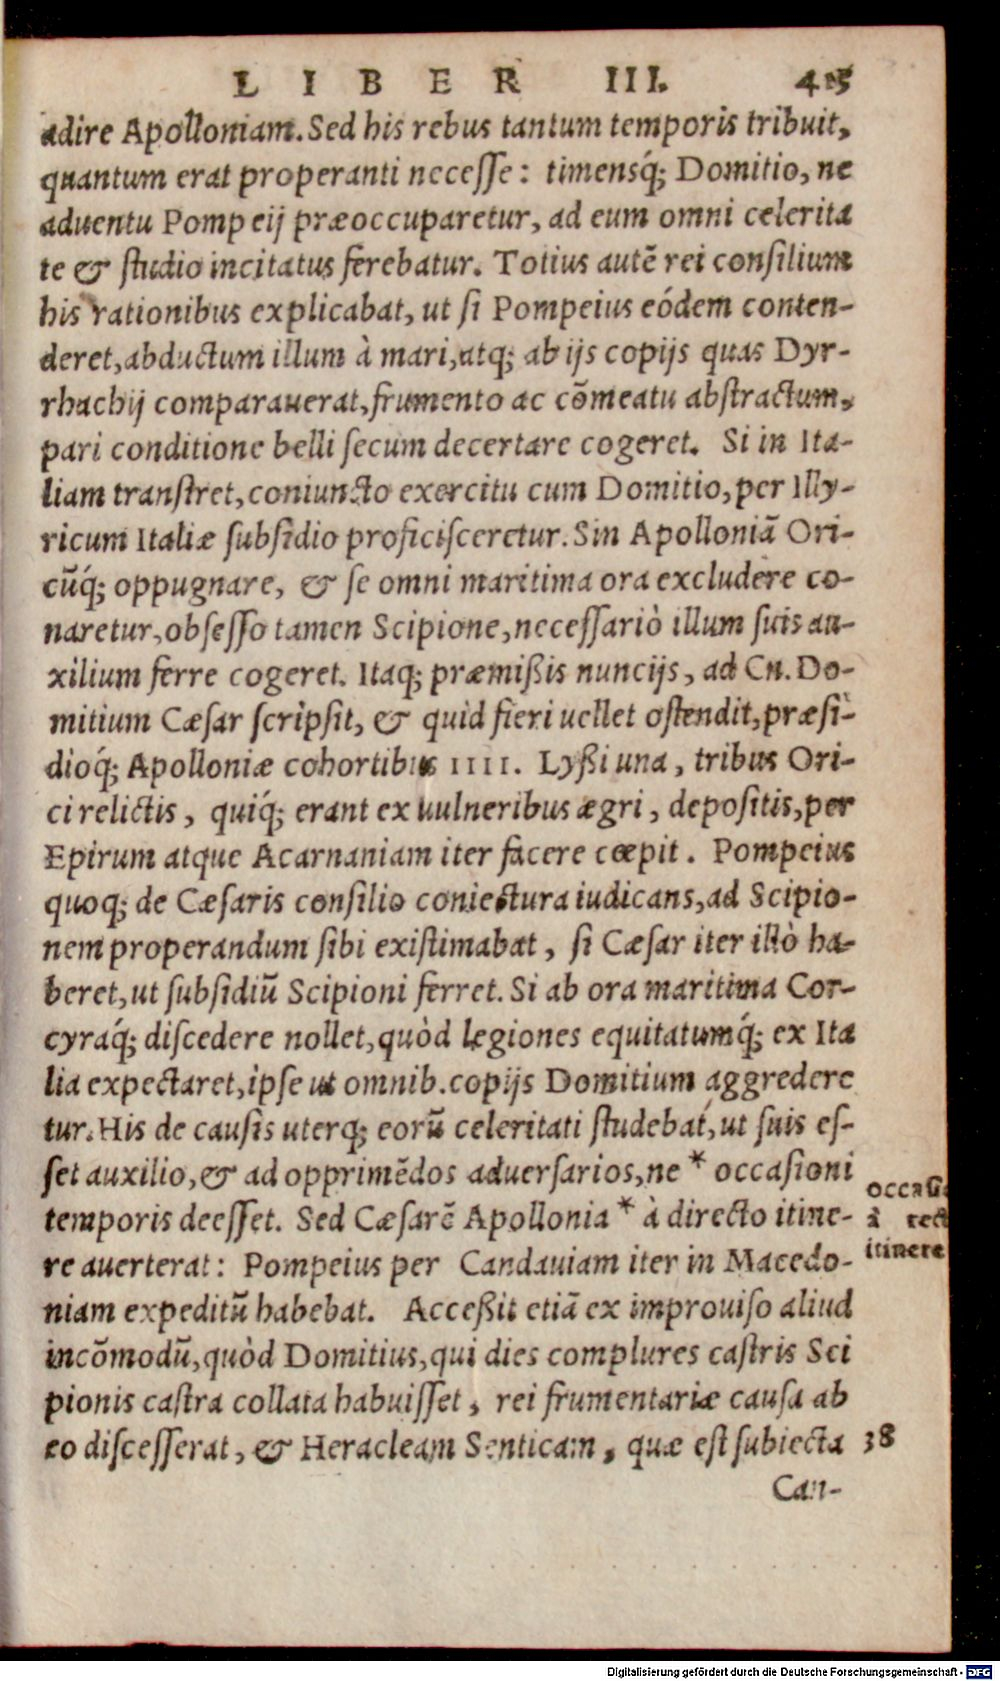 LIBER III. 415
adire Apolloniam. Sed his rebus tantum temporis tribuit,
quantum erat properanti necesse: timensq́; Domitio, ne
aduentu Pompeij præoccuparetur, ad eum omni celerita
te & studio incitatus ferebatur. Totius autē rei consilium
his rationibus explicabat, ut si Pompeius eódem conten-
deret, abductum illum à mari, atq; ab ijs copijs quas Dyr-
rhachij comparauerat, frumento ac cōmeatu abstractum,
pari conditione belli secum decertare cogeret. Si in Ita-
liam transiret, coniuncto exercitu cum Domitio, per Illy-
ricum Italiæ subsidio proficisceretur. Sin Apolloniā Ori-
cūq́; oppugnare, & se omni maritima ora excludere co-
naretur, obsesso tamen Scipione, necessariò illum suis au-
xilium ferre cogeret. Itaq; præmißis nuncijs, ad Cn. Do-
mitium Cæsar scripsit, & quid fieri uellet ostendit, præsi-
dioq́; Apolloniæ cohortibus IIII. Lyßi una, tribus Ori-
ci relictis, quiq́; erant ex uulneribus ægri, depositis, per
Epirum atque Acarnaniam iter facere cœpit. Pompeius
quoq; de Cæsaris consilio coniectura iudicans, ad Scipio-
nem properandum sibi existimabat, si Cæsar iter illò ha-
beret, ut subsidiū Scipioni ferret. Si ab ora maritima Cor-
cyraq́; discedere nollet, quòd legiones equitatumq́; ex Ita
lia expectaret, ipse ut omnib. copijs Domitium aggredere
tur. His de causis uterq; eorū celeritati studebat, ut suis es-
set auxilio, & ad opprimēdos aduersarios, ne * occasioni
temporis deesset. Sed Cæsarē Apollonia * à directo itine-
re auerterat: Pompeius per Candauiam iter in Macedo-
niam expeditū habebat. Acceßit etiā ex improuiso aliud
incōmodū, quòd Domitius, qui dies complures castris Sci
pionis castra collata habuisset, rei frumentariæ causa ab
eo discesserat, & Heracleam Senticam, quæ est subiecta
Can-
à rect
itinere
38
Digitalisierung gefördert durch die Deutsche Forschungsgemeinschaft - DFG